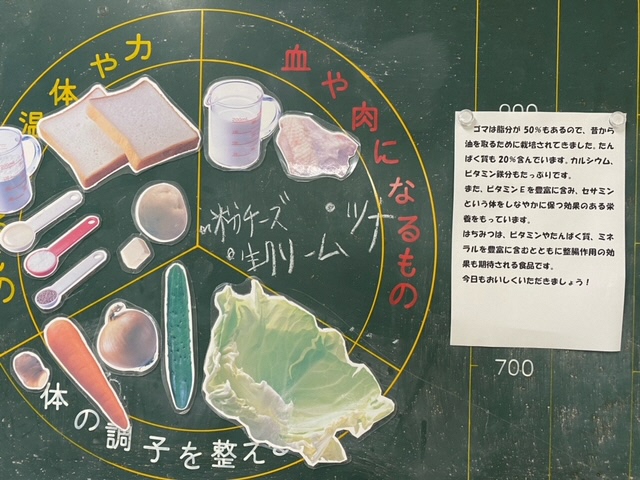 体や力
温
の
血や肉になるもの
粉チーズ
ツナ
生クリーム
体の調子を整える
900
700
ゴマは脂分が50%もあるので、昔から
油を取るために栽培されてきました。たん
ぱく質も20%含んでいます。カルシウム、
ビタミン鉄分もたっぷりです。
また、ビタミンEを豊富に含み、セサミン
という体をしなやかに保つ効果のある栄
養をもっています。
はちみつは、ビタミンやたんぱく質、ミネ
ラルを豊富に含むとともに整腸作用の効
果も期待される食品です。
今日もおいしくいただきましょう！